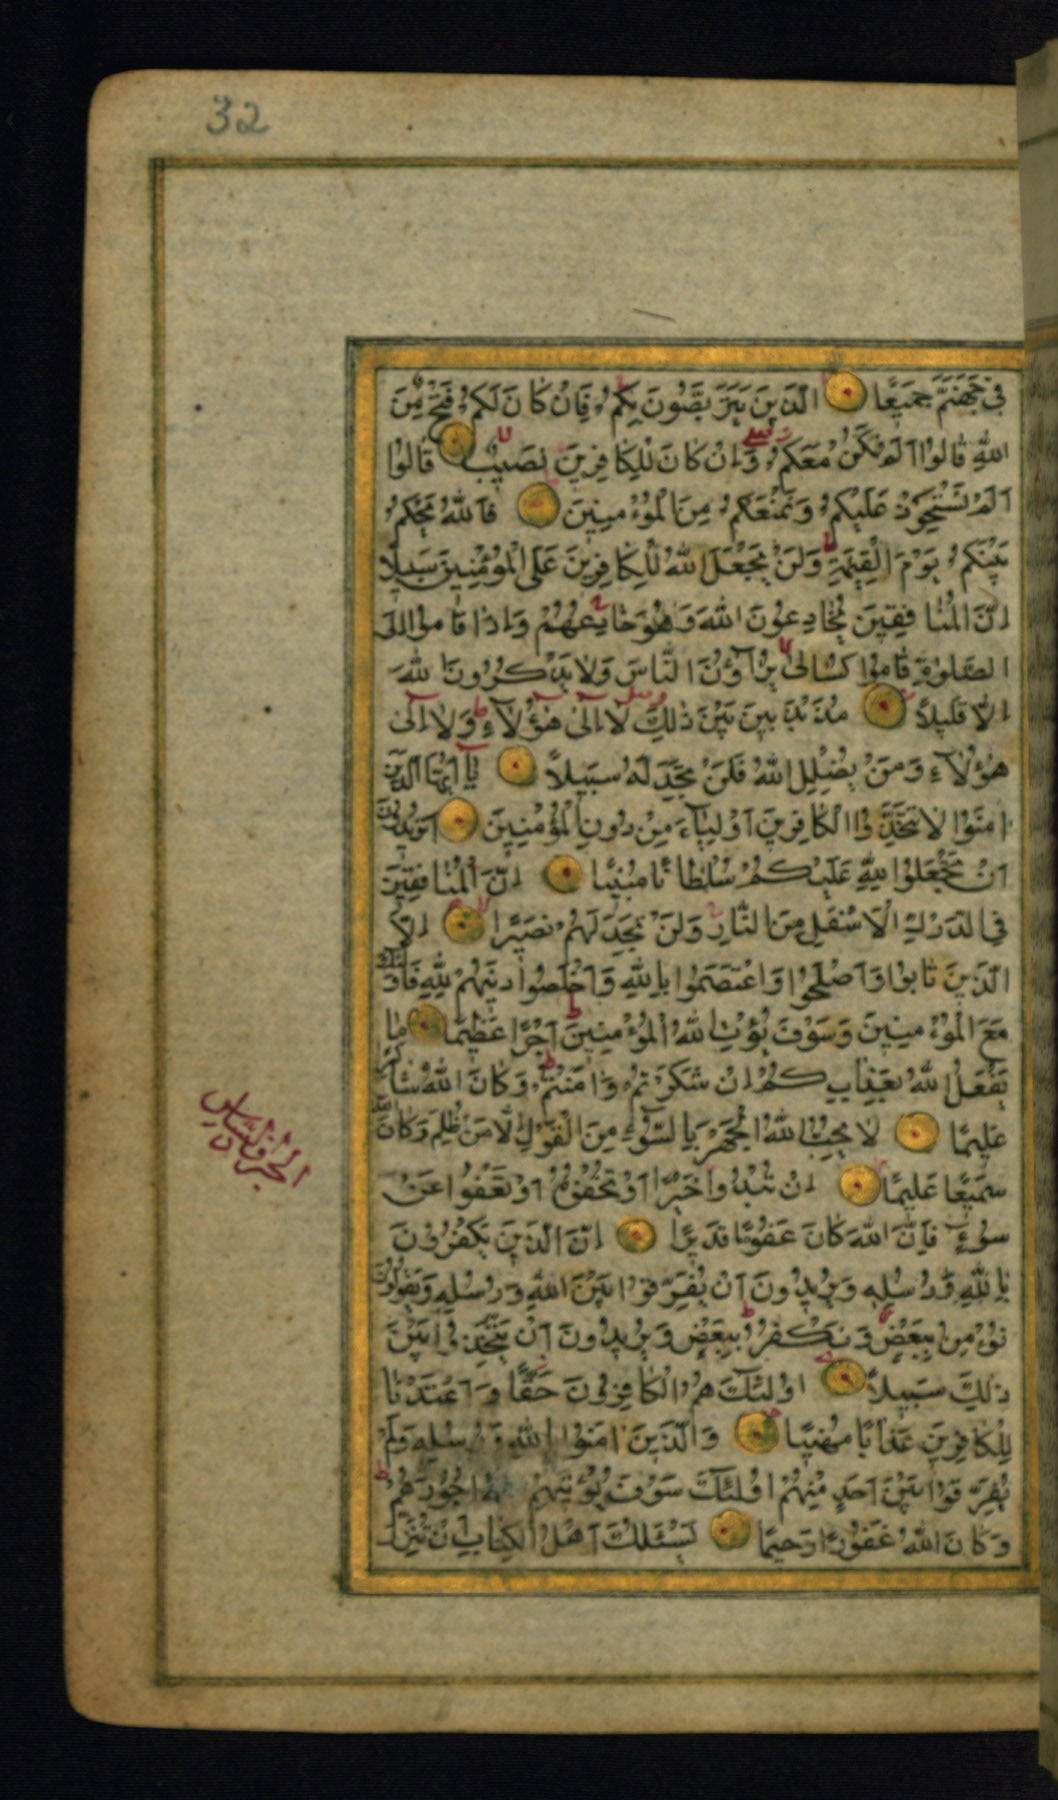 32
فِي جَهَنَّمَ جَمِيعًا الَّذِينَ يَتَرَبَّصُونَ بِكُمْ فَإِنْ كَانَ لَكُمْ فَتْحٌ مِنَ
اللَّهِ قَالُوا أَلَمْ نَكُنْ مَعَكُمْ وَإِنْ كَانَ لِلْكَافِرِينَ نَصِيبٌ قَالُوا
أَلَمْ نَسْتَحْوِذْ عَلَيْكُمْ وَنَمْنَعْكُمْ مِنَ الْمُؤْمِنِينَ فَاللَّهُ يَحْكُمُ
بَيْنَكُمْ يَوْمَ الْقِيٰمَةِ وَلَنْ يَجْعَلَ اللَّهُ لِلْكَافِرِينَ عَلَى الْمُؤْمِنِينَ سَبِيلًا
إِنَّ الْمُنَافِقِينَ يُخَادِعُونَ اللَّهَ وَهُوَ خَادِعُهُمْ وَإِذَا قَامُوا إِلَى
الصَّلٰوةِ قَامُوا كُسَالَى يُرَآؤُنَ النَّاسَ وَلَا يَذْكُرُونَ اللَّهَ
إِلَّا قَلِيلًا مُذَبْذَبِينَ بَيْنَ ذٰلِكَ لَا إِلَى هٰؤُلَآءِ وَلَا إِلَى
هٰؤُلَآءِ وَمَنْ يُضْلِلِ اللَّهُ فَلَنْ تَجِدَ لَهُ سَبِيلًا يَآ أَيُّهَا الَّذِينَ
اٰمَنُوا لَا تَتَّخِذُوا الْكَافِرِينَ أَوْلِيَآءَ مِنْ دُونِ الْمُؤْمِنِينَ أَتُرِيدُونَ
أَنْ تَجْعَلُوا لِلَّهِ عَلَيْكُمْ سُلْطَانًا مُبِينًا إِنَّ الْمُنَافِقِينَ
فِي الدَّرْكِ الْأَسْفَلِ مِنَ النَّارِ وَلَنْ تَجِدَ لَهُمْ نَصِيرًا إِلَّا
الَّذِينَ تَابُوا وَأَصْلَحُوا وَاعْتَصَمُوا بِاللَّهِ وَأَخْلَصُوا دِينَهُمْ لِلَّهِ فَأُولٰئِكَ
مَعَ الْمُؤْمِنِينَ وَسَوْفَ يُؤْتِ اللَّهُ الْمُؤْمِنِينَ أَجْرًا عَظِيمًا مَا
يَفْعَلُ اللَّهُ بِعَذَابِكُمْ إِنْ شَكَرْتُمْ وَاٰمَنْتُمْ وَكَانَ اللَّهُ شَاكِرًا
عَلِيمًا لَا يُحِبُّ اللَّهُ الْجَهْرَ بِالسُّوٓءِ مِنَ الْقَوْلِ إِلَّا مَنْ ظُلِمَ وَكَانَ اللَّهُ
سَمِيعًا عَلِيمًا إِنْ تُبْدُوا خَيْرًا أَوْ تُخْفُوهُ أَوْ تَعْفُوا عَنْ
سُوٓءٍ فَإِنَّ اللَّهَ كَانَ عَفُوًّا قَدِيرًا إِنَّ الَّذِينَ يَكْفُرُونَ
بِاللَّهِ وَرُسُلِهِ وَيُرِيدُونَ أَنْ يُفَرِّقُوا بَيْنَ اللَّهِ وَرُسُلِهِ وَيَقُولُونَ
نُؤْمِنُ بِبَعْضٍ وَنَكْفُرُ بِبَعْضٍ وَيُرِيدُونَ أَنْ يَتَّخِذُوا بَيْنَ
ذٰلِكَ سَبِيلًا أُولٰئِكَ هُمُ الْكَافِرُونَ حَقًّا وَأَعْتَدْنَا
لِلْكَافِرِينَ عَذَابًا مُهِينًا وَالَّذِينَ اٰمَنُوا بِاللَّهِ وَرُسُلِهِ وَلَمْ
يُفَرِّقُوا بَيْنَ أَحَدٍ مِنْهُمْ أُولٰئِكَ سَوْفَ يُؤْتِيهِمْ أُجُورَهُمْ
وَكَانَ اللَّهُ غَفُورًا رَحِيمًا يَسْئَلُكَ أَهْلُ الْكِتَابِ أَنْ تُنَزِّلَ
الجزء السادس